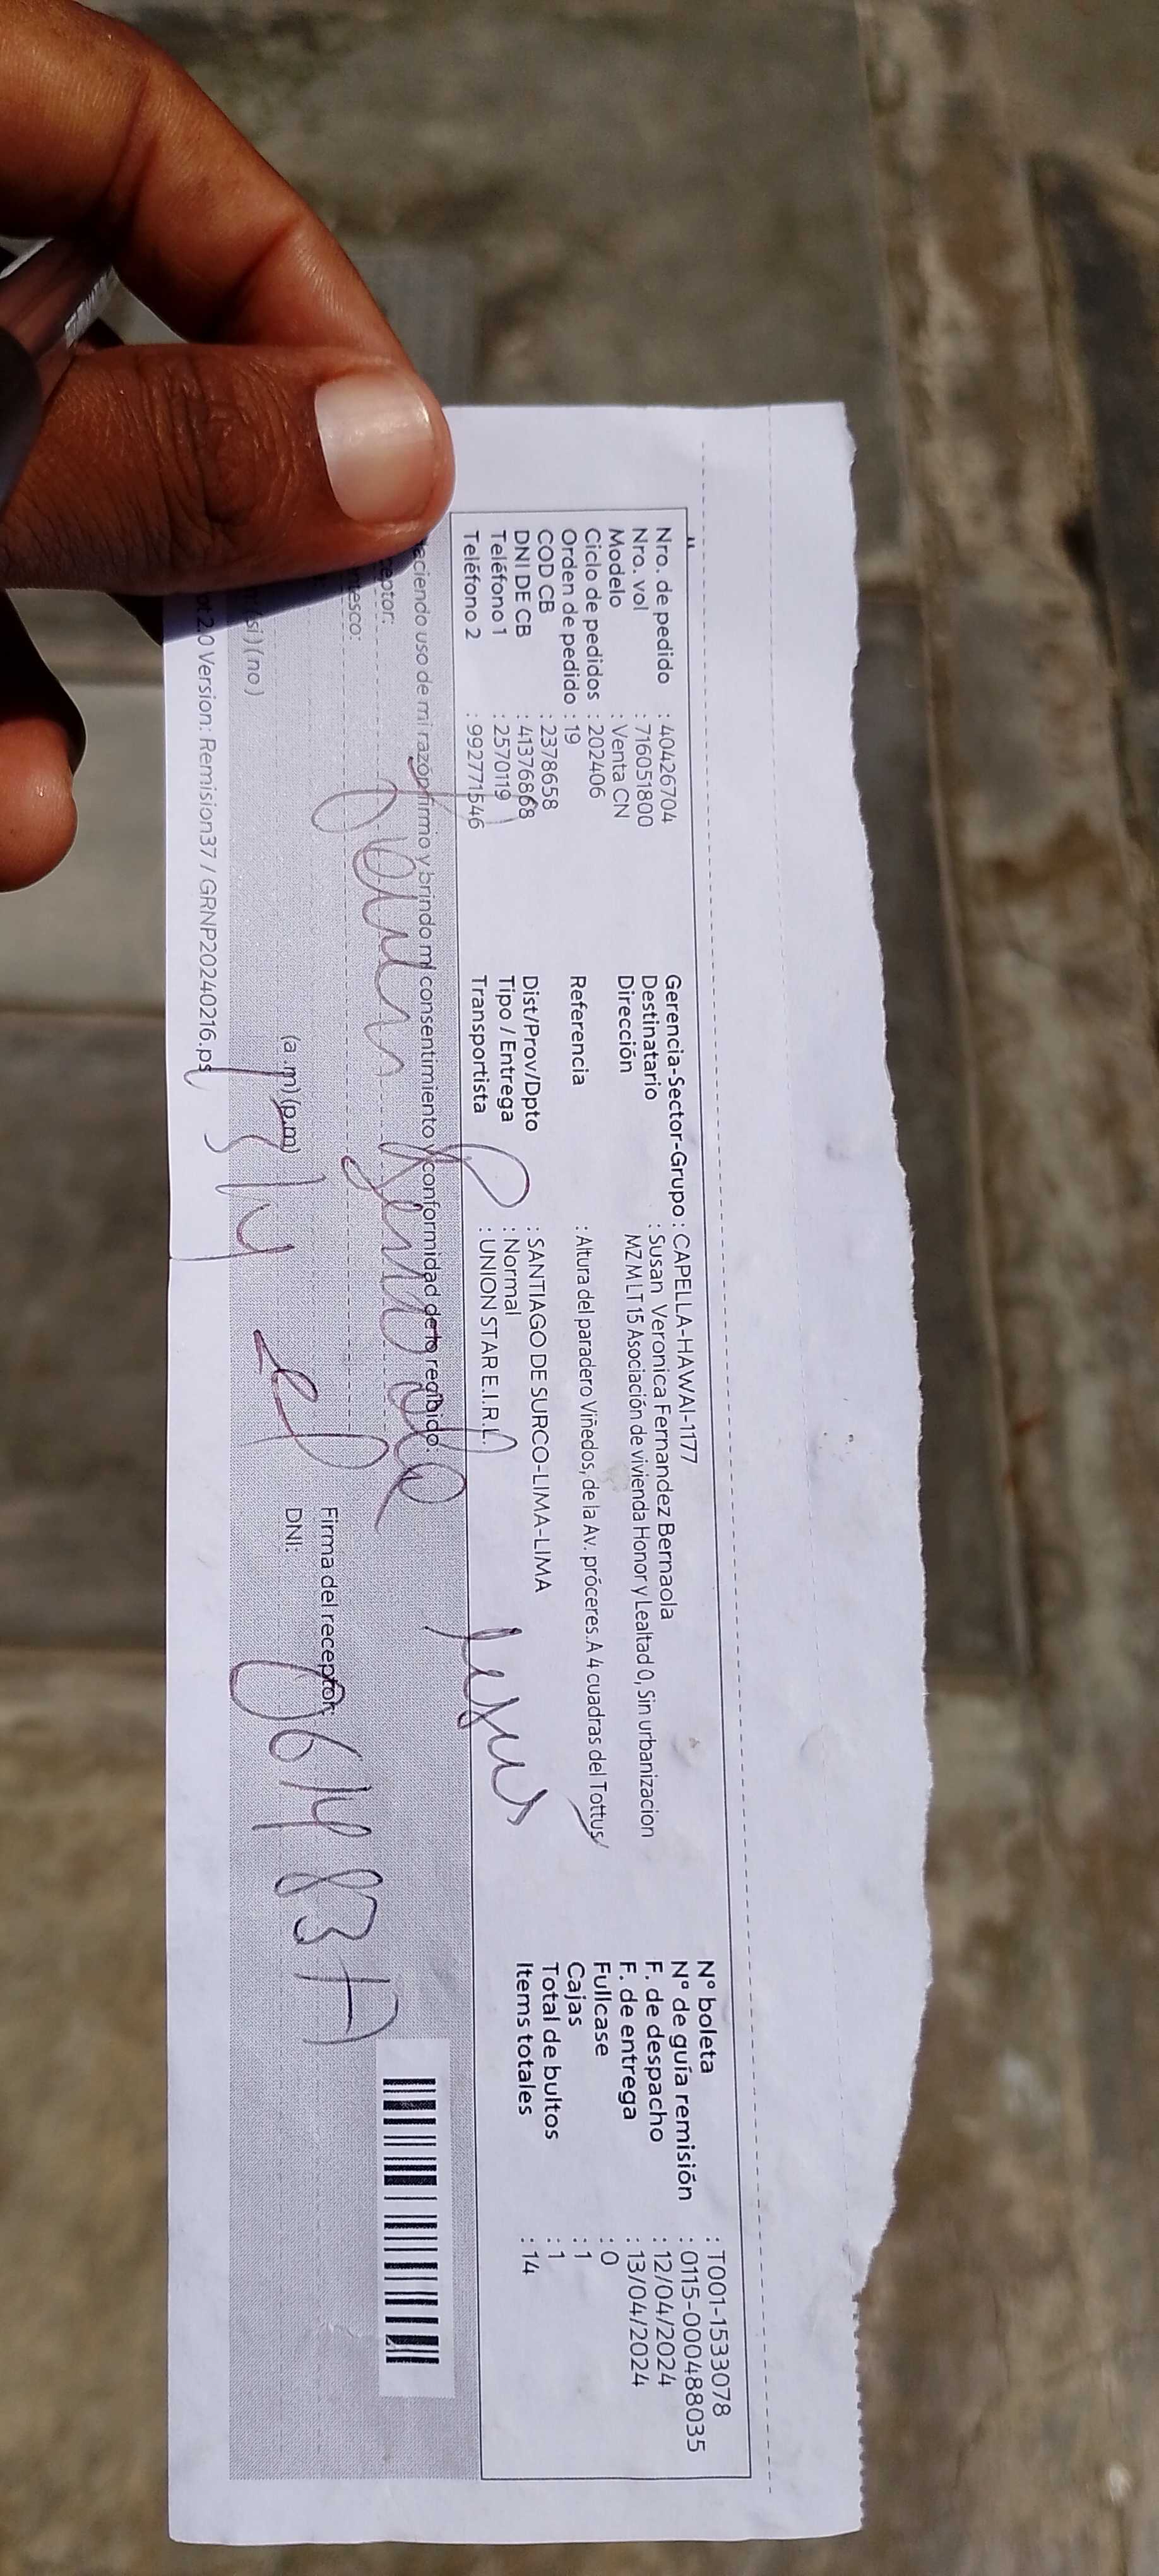 Nro. de pedido : 40426704
Nro. vol : 716051800
Modelo : Venta CN
Ciclo de pedidos : 202406
Orden de pedido : 19
COD CB : 2378658
DNI DE CB : 41376868
Teléfono 1 : 2570119
Teléfono 2 : 992771546
Gerencia-Sector-Grupo : CAPELLA-HAWAI-1177
Destinatario : Susan Veronica Fernandez Bernaola
Dirección MZ M LT 15 Asociación de vivienda Honor y Lealtad 0, Sin urbanizacion
Referencia : Altura del paradero Viñedos, de la Av. próceres. A 4 cuadras del Tottus/
Dist/Prov/Dpto : SANTIAGO DE SURCO-LIMA-LIMA
Tipo / Entrega : Normal
Transportista : UNION STAR E.I.R.L.
N° boleta : T001-1533078
N° de guía remisión : 0115-000488035
F. de despacho : 12/04/2024
F. de entrega : 13/04/2024
Fullcase : 0
Cajas : 1
Total de bultos : 1
Items totales : 14
aciendo uso de mi razón firmo y brindo mi consentimiento y conformidad de lo recibido:
eptor:
ntesco:
(si) (no)
(a.m) (p.m)
Firma del receptor:
DNI:
2.0 Version: Remision37 / GRNP20240216.ps